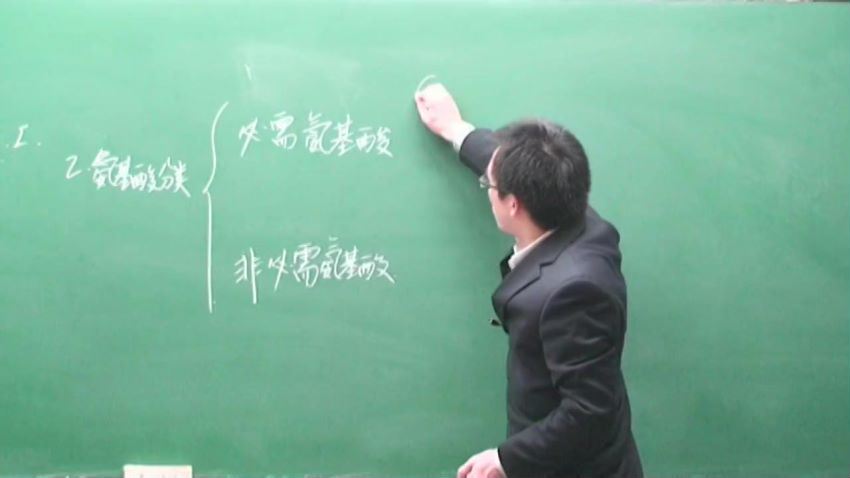 I.
必需氨基酸
2.氨基酸分类
非必需氨基酸